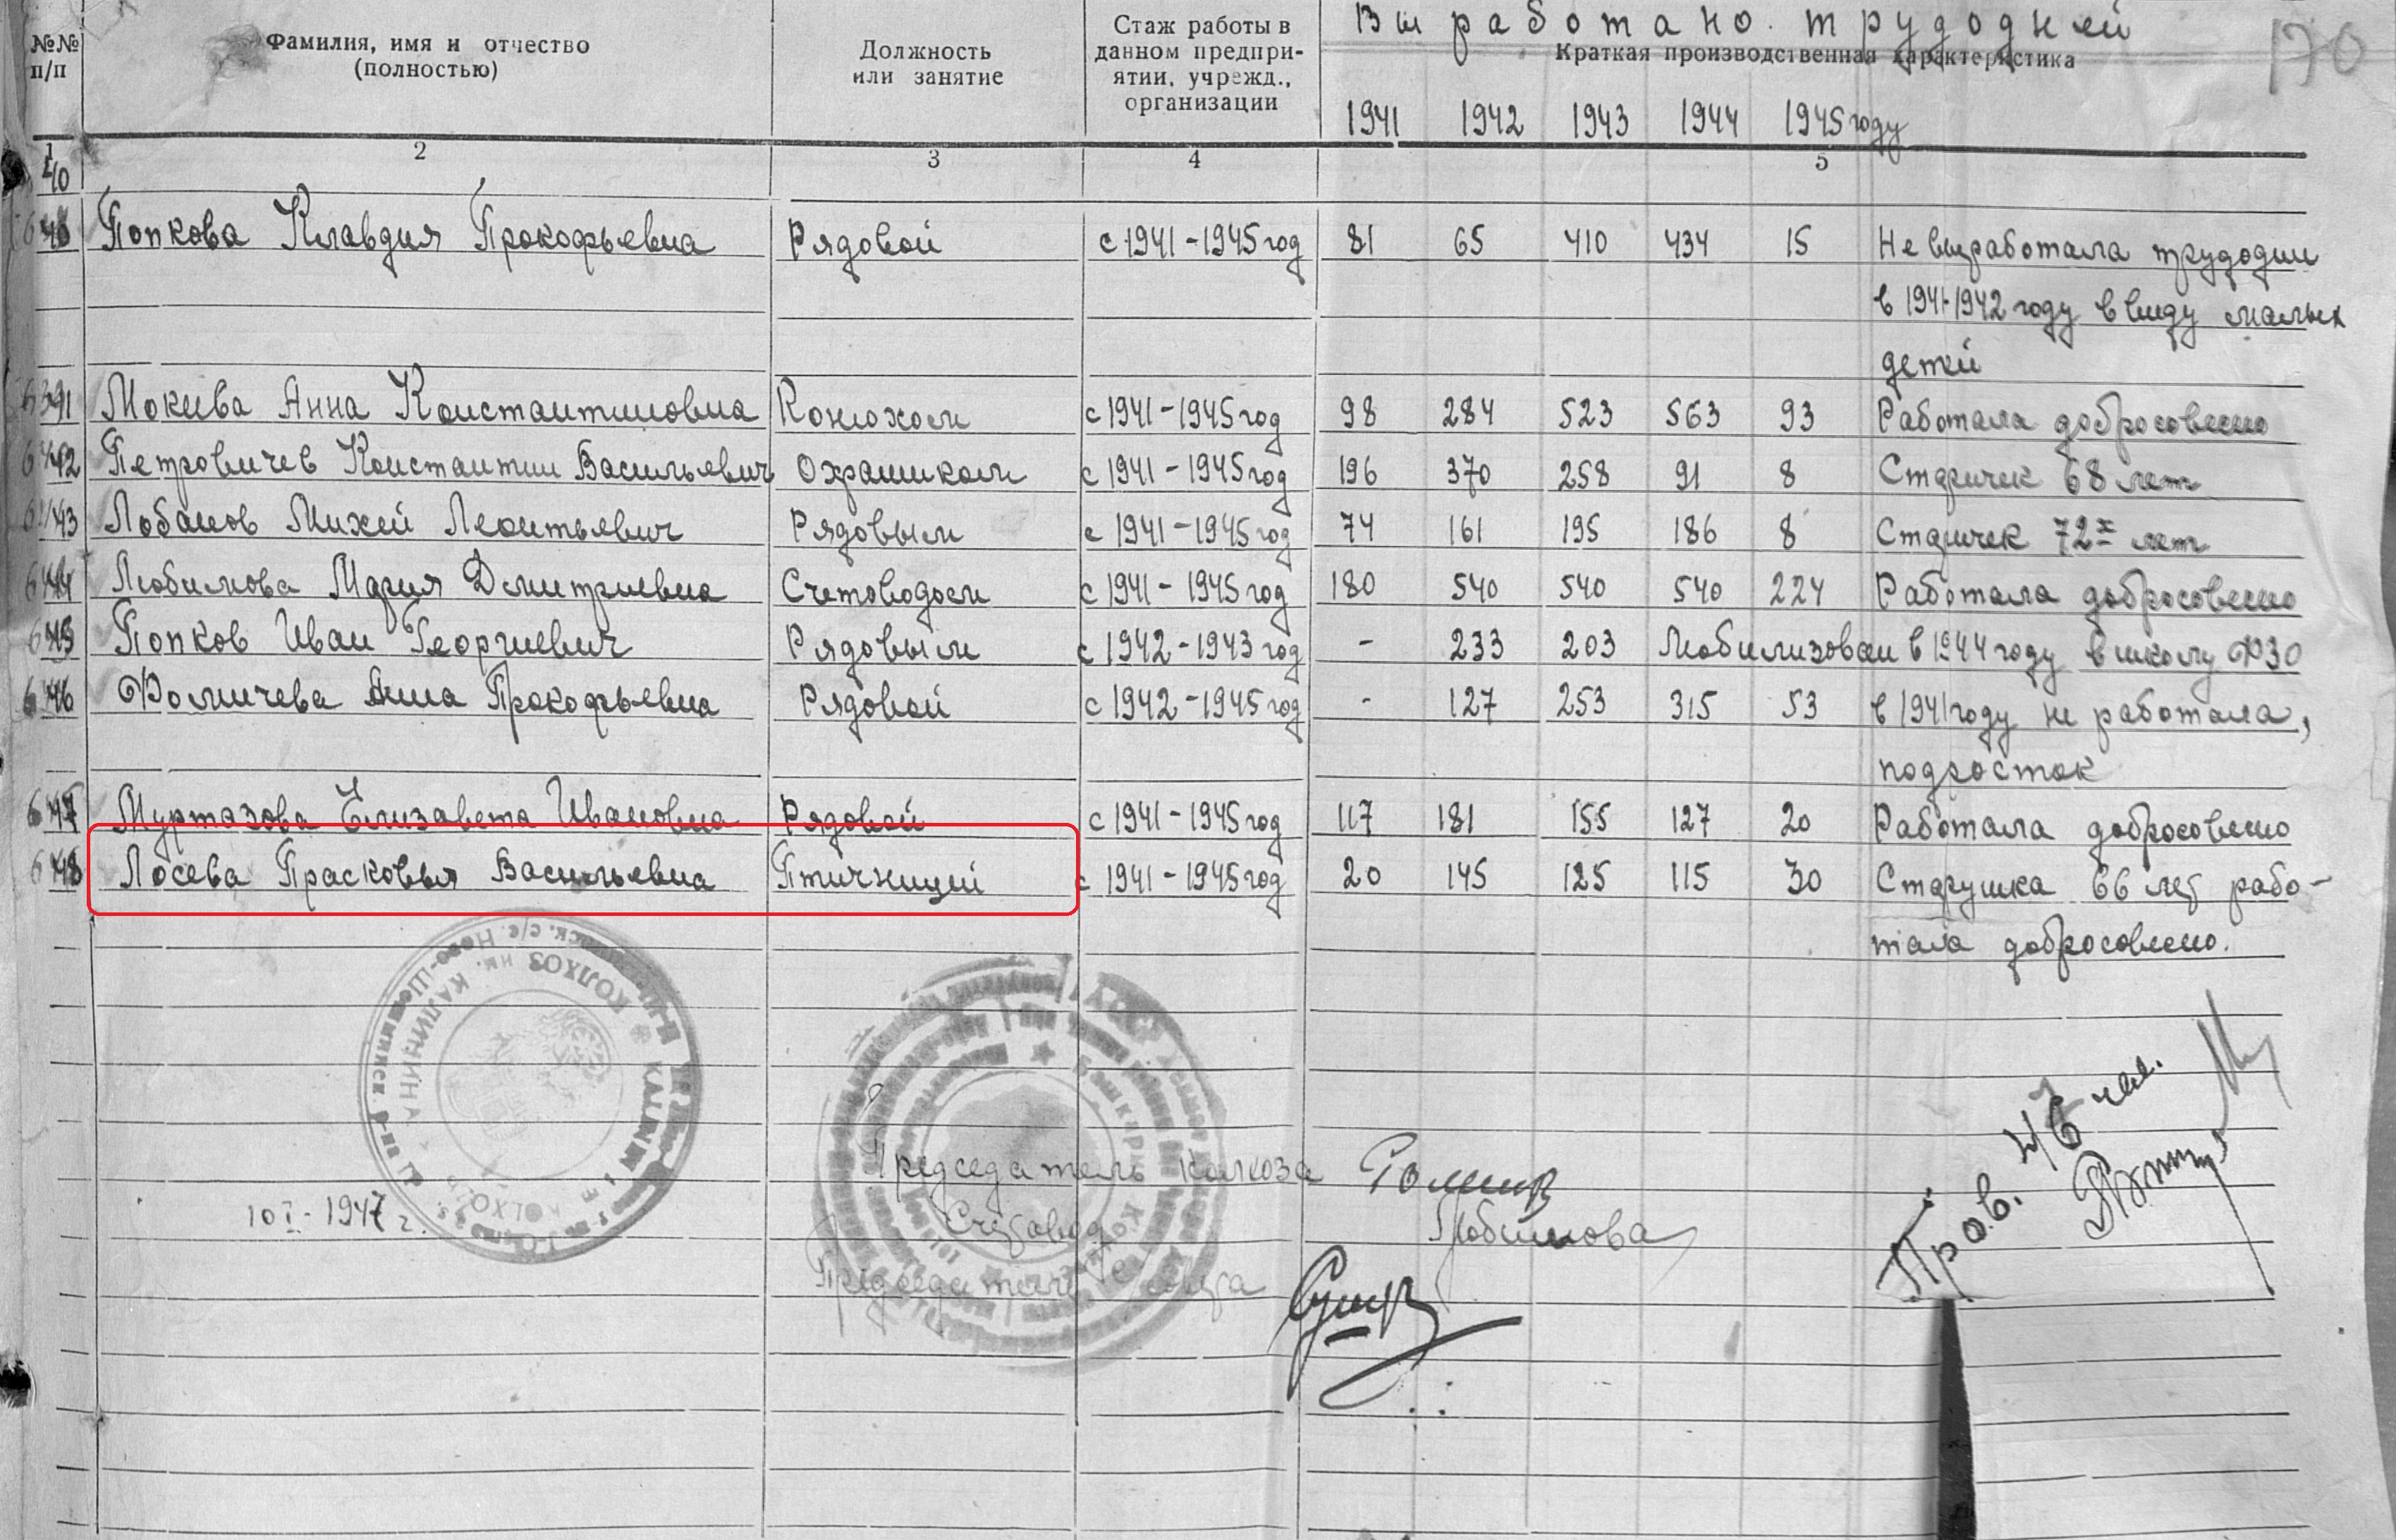 Выработано трудодней
170
№№ п/п
Фамилия, имя и отчество (полностью)
Должность или занятие
Стаж работы в данном предприятии, учрежд., организации
Краткая производственная характеристика
1941 1942 1943 1944 1945 году
1 2 3 4 5
40 Попкова Клавдия Прокофьевна Рядовой с 1941-1945 год 81 65 410 434 15 Не выработала трудодни
в 1941-1942 году в виду малых
детей
41 Мокеева Анна Константиновна Конюхом с 1941-1945 год 98 284 523 563 93 Работала добросовесно
42 Петровичев Константин Васильевич Охранником с 1941-1945 год 196 370 258 91 8 Старичек 68 лет
43 Лобанов Михей Леонтьевич Рядовым с 1941-1945 год 74 161 195 186 8 Старичек 72х лет
44 Любимова Мария Дмитриевна Счетоводом с 1941-1945 год 180 540 540 540 224 Работала добросовесно
45 Попков Иван Георгиевич Рядовым с 1942-1943 год - 233 203 Мобилизован в 1944 году в школу ФЗО
46 Фомичева Анна Прокофьевна Рядовой с 1942-1945 год - 127 253 315 53 в 1941 году не работала,
подросток
47 Муртазова Елизавета Ивановна Рядовой с 1941-1945 год 117 181 155 127 20 Работала добросовесно
48 Лосева Прасковья Васильевна Птичницей с 1941-1945 год 20 145 125 115 30 Старушка 66 лет рабо-
тала добросовесно.
КОЛХОЗ им. КАЛИНИНА
Председатель колхоза
Счетовод Любимова
Председатель
10 I - 1947 г.
Пров. чел.